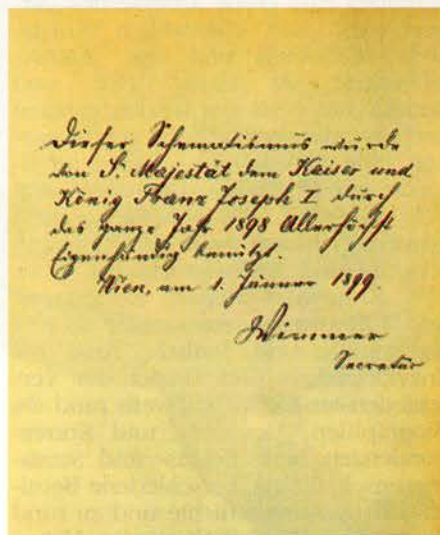 Dieser Schematismus wurde
von Sr. Majestät dem Kaiser und
König Franz Joseph I. durch
das ganze Jahr 1898 Allerhöchst
Eigenhändig benützt.
Wien, am 1. Jänner 1899.
Wimmer
Secretär